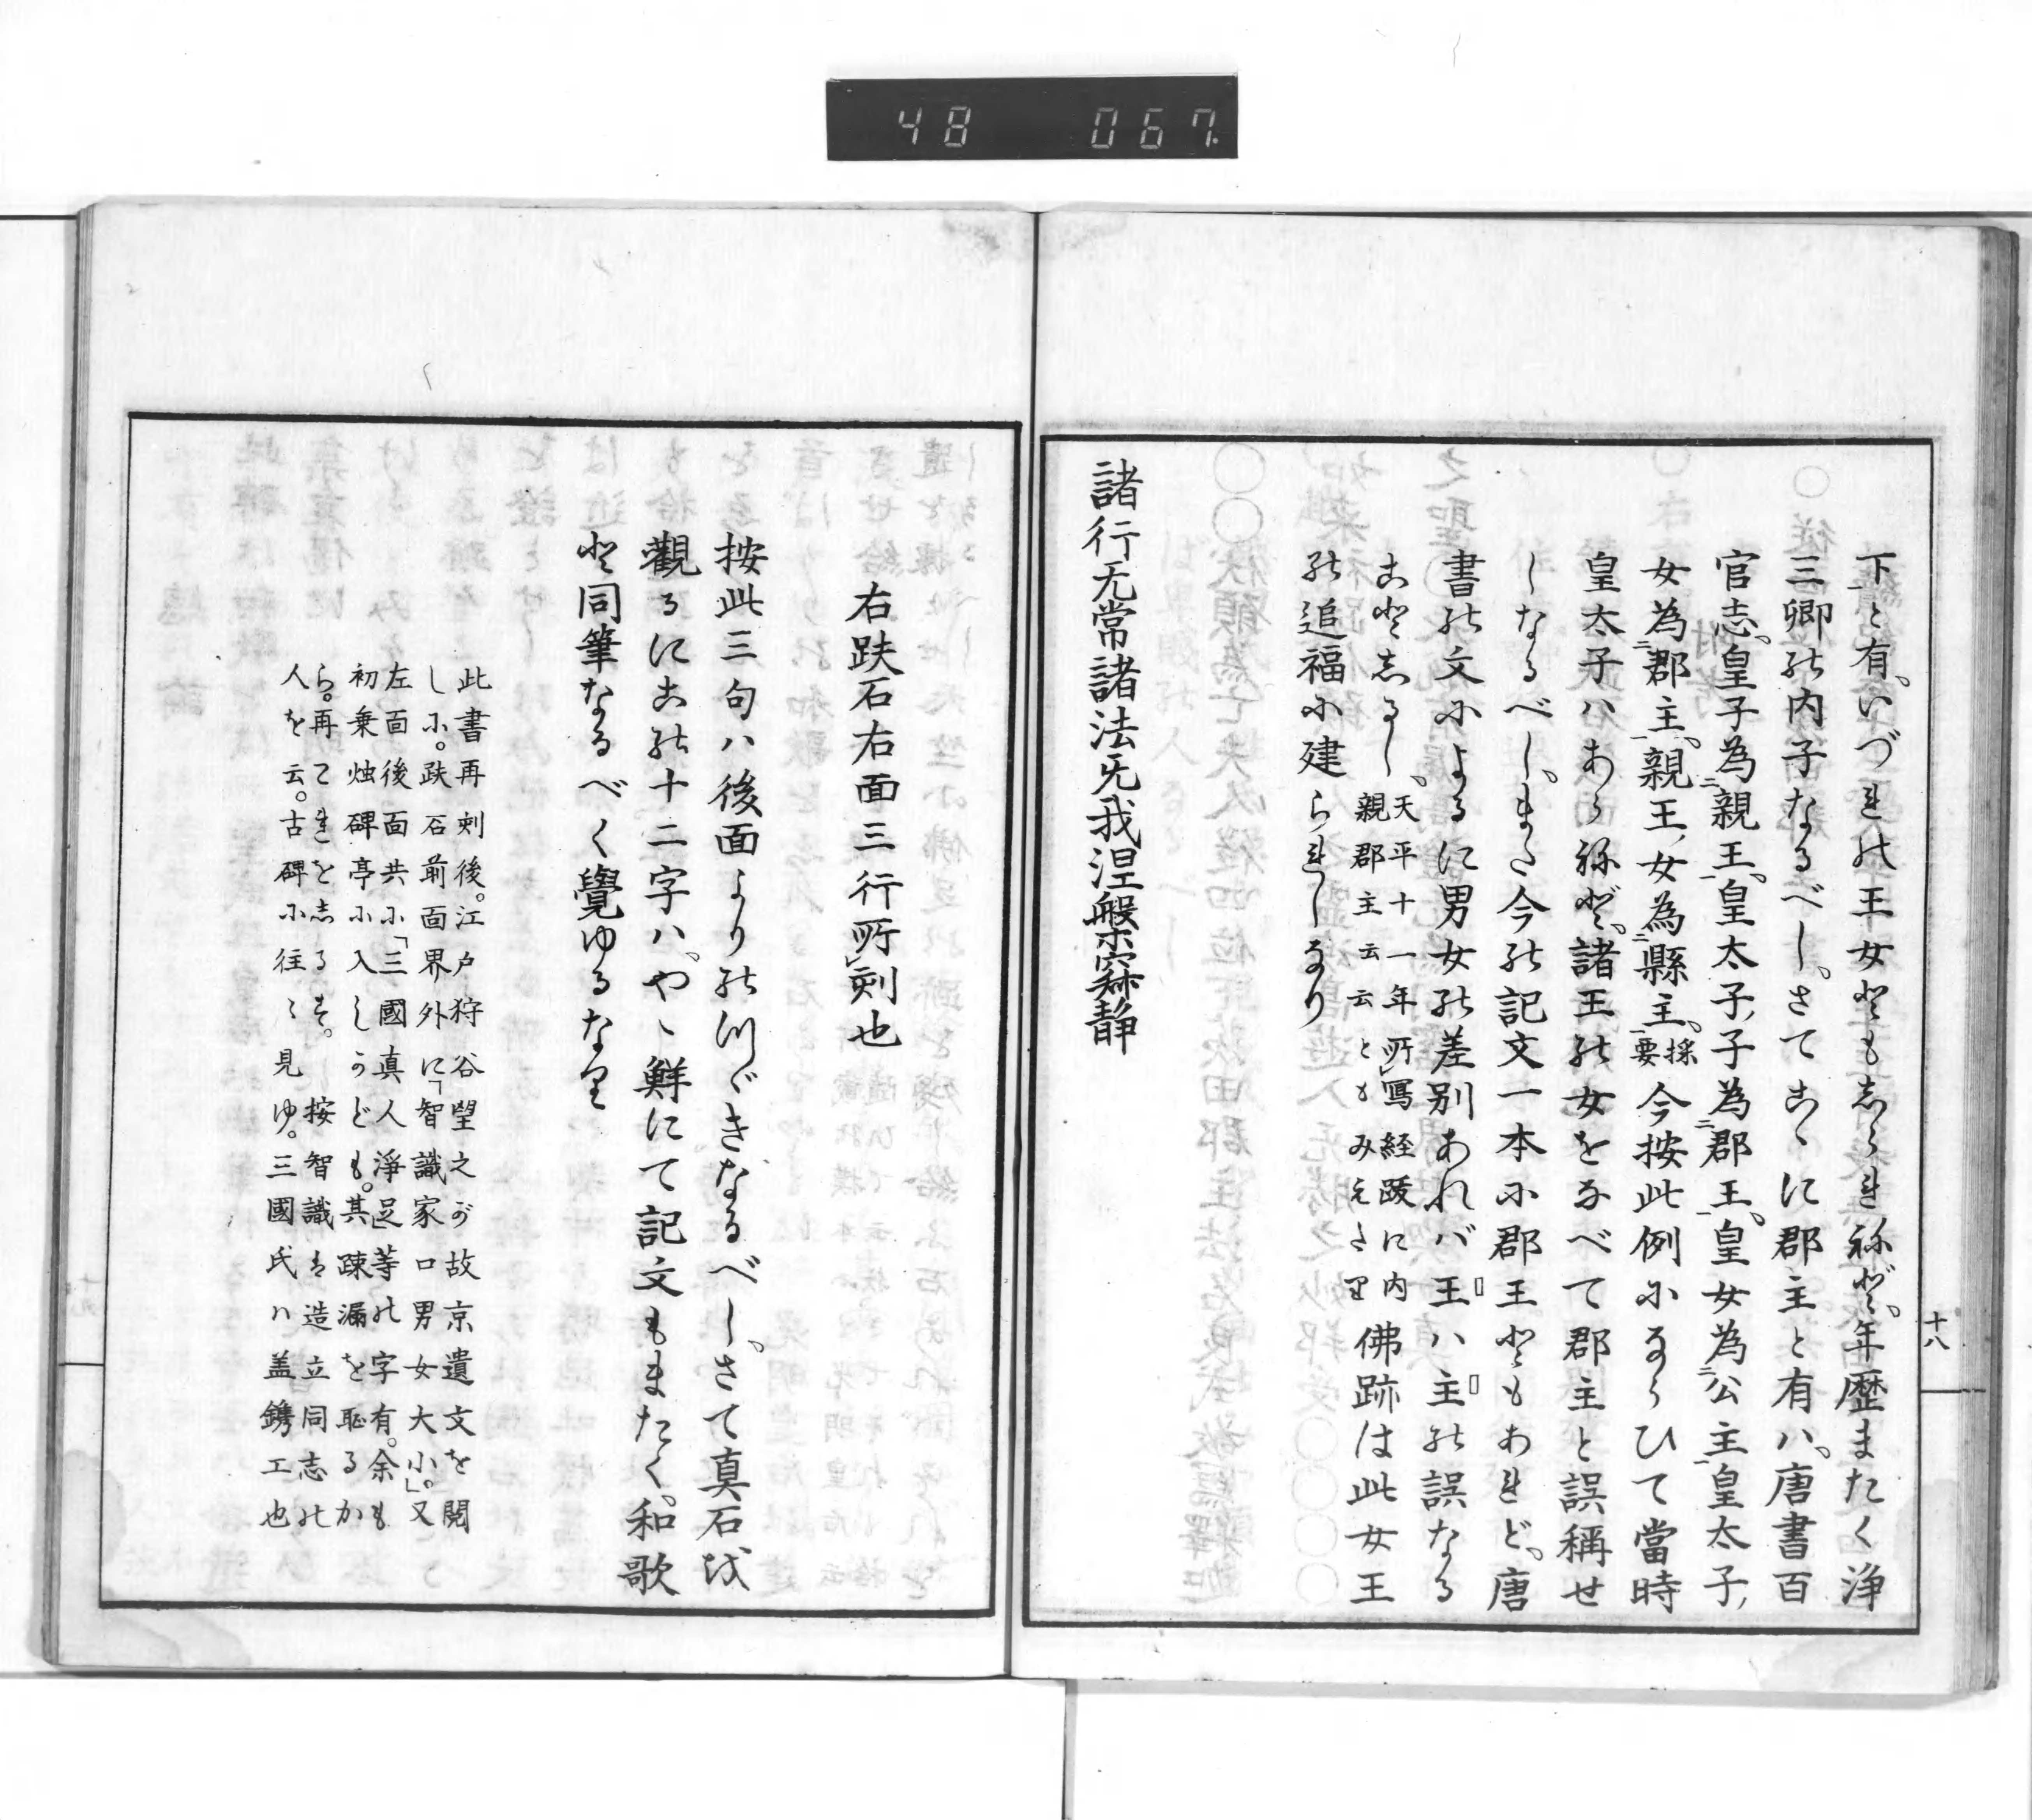 48 067.
下と有。いづれの王女ともしられねど、年歴またく浄
三卿の内子なるべし。さてこゝに郡主と有ハ、唐書百
官志。皇子為二親王一。皇太子、子為二郡王一。皇女為二公主一皇太子、
女為二郡主一。親王、女為二縣主一。採要今按此例にならひて當時
皇太子ハあらねど、諸王の女をなべて郡主と誤稱せ
しなるべし。また今の記文一本に郡王ともあれど、唐
書の文によるに男女の差別あれバ王ハ主の誤なる
ことしるし。天平十一年所写経跋に内
親郡主云云ともみえたり佛跡は此女王
の追福に建られしなり
諸行无常諸法无我涅槃寂静
十八
右趺石右面三行所刻也
按此三句ハ後面よりのつゞきなるべし。さて真石を
觀るにこの十二字ハ、やゝ鮮にて記文もまたく和歌
と同筆なるべく覺ゆるなり
此書再刻後。江戸狩谷望之が故京遺文を閲
しに。趺石前面界外に「智識家口男女大小」。又
左面後面共に「三國真人淨足」等の字有。余も
初乗燭碑亭に入しかども。其疎漏を恥るか
ら。再てこれをしるす。按智識は造立同志の
人を云。古碑に往々見ゆ。三國氏ハ盖鐫工也